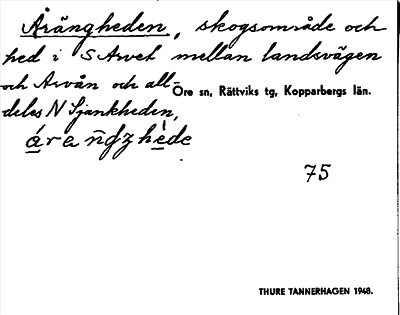 Åråängheden, skogsområde och
hed i S Arvet mellan landsvägen
och Arvån och all-
Ore sn, Rättviks tg, Kopparbergs län.
deles N Sjankheden,
75
THURE TANNERHAGEN 1948.